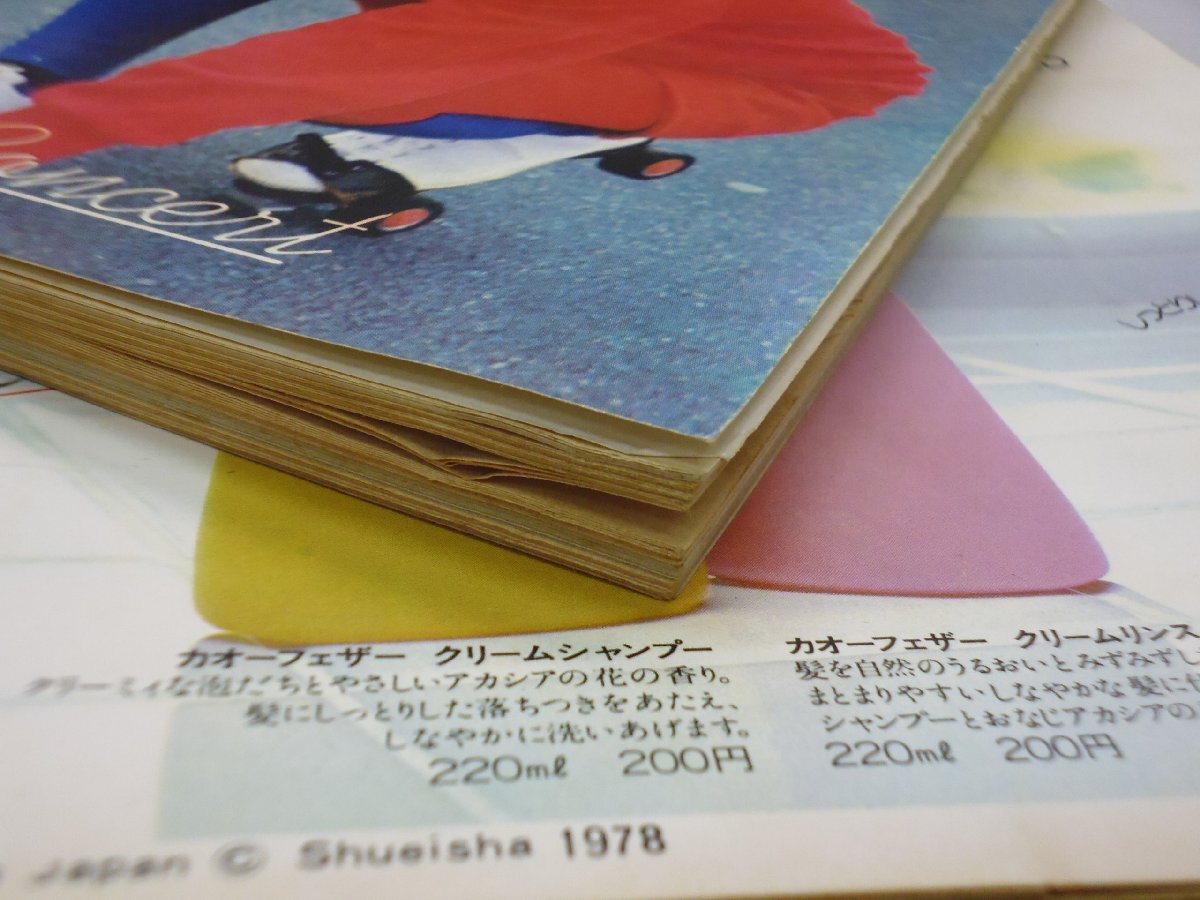 Concert
カオーフェザー クリームシャンプー
クリーミィな泡だちとやさしいアカシアの花の香り。
髪にしっとりした落ちつきをあたえ、
しなやかに洗いあげます。
220ml 200円
カオーフェザー クリームリンス
髪を自然のうるおいとみずみずし
まとまりやすいしなやかな髪に
シャンプーとおなじアカシアの
220ml 200円
Japan © Shueisha 1978